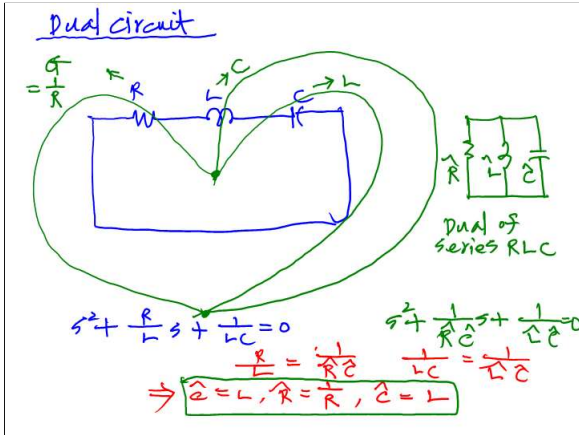 Dual circuit
G
= 1/R
R
L
C
C
L
R̂
L̂
Ĉ
Dual of
series RLC
s² + R/L s + 1/LC = 0
s² + 1/R̂Ĉ s + 1/L̂Ĉ = 0
R/L = 1/R̂Ĉ
1/LC = 1/L̂Ĉ
⇒ ĉ = L, R̂ = 1/R, ĉ = L